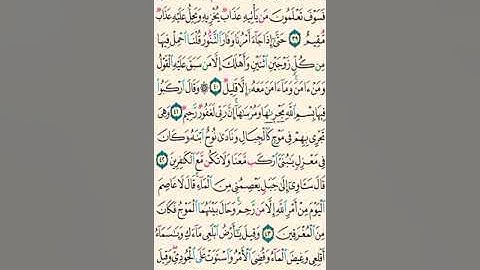 فَسَوْفَ تَعْلَمُونَ مَن يَأْتِيهِ عَذَابٌ يُخْزِيهِ وَيَحِلُّ عَلَيْهِ عَذَابٌ
مُّقِيمٌ ٣٩ حَتَّىٰٓ إِذَا جَآءَ أَمْرُنَا وَفَارَ ٱلتَّنُّورُ قُلْنَا ٱحْمِلْ فِيهَا
مِن كُلٍّ زَوْجَيْنِ ٱثْنَيْنِ وَأَهْلَكَ إِلَّا مَن سَبَقَ عَلَيْهِ ٱلْقَوْلُ
وَمَنْ ءَامَنَ ۚ وَمَآ ءَامَنَ مَعَهُۥٓ إِلَّا قَلِيلٌ ٤٠ ۞ وَقَالَ ٱرْكَبُوا۟
فِيهَا بِسْمِ ٱللَّهِ مَجْر۪ىٰهَا وَمُرْسَىٰهَآ ۚ إِنَّ رَبِّى لَغَفُورٌ رَّحِيمٌ ٤١ وَهِىَ
تَجْرِى بِهِمْ فِى مَوْجٍ كَٱلْجِبَالِ وَنَادَىٰ نُوحٌ ٱبْنَهُۥ وَكَانَ
فِى مَعْزِلٍ يَـٰبُنَىَّ ٱرْكَب مَّعَنَا وَلَا تَكُن مَّعَ ٱلْكَـٰفِرِينَ ٤٢
قَالَ سَـَٔاوِىٓ إِلَىٰ جَبَلٍ يَعْصِمُنِى مِنَ ٱلْمَآءِ ۚ قَالَ لَا عَاصِمَ
ٱلْيَوْمَ مِنْ أَمْرِ ٱللَّهِ إِلَّا مَن رَّحِمَ ۚ وَحَالَ بَيْنَهُمَا ٱلْمَوْجُ فَكَانَ
مِنَ ٱلْمُغْرَقِينَ ٤٣ وَقِيلَ يَـٰٓأَرْضُ ٱبْلَعِى مَآءَكِ وَيَـٰسَمَآءُ
أَقْلِعِى وَغِيضَ ٱلْمَآءُ وَقُضِىَ ٱلْأَمْرُ وَٱسْتَوَتْ عَلَى ٱلْجُودِىِّ ۖ وَقِيلَ